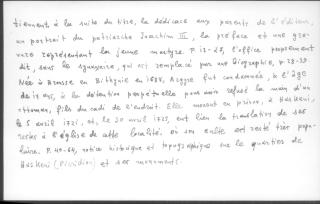 tiennent, à la suite du titre, la dédicace aux parents de l'éditeur,
un portrait du patriarche Joachim III, la préface et une gra-
vure représentant la jeune martyre. P. 13-27, l'office proprement
dit, sans le synaxaire, qui est remplacé par une biographie, p. 28-39
Née à Brousse en Bithynie en 1688, Argyre fut condamnée, à l'âge
de ans, à la détention perpétuelle pour avoir refusé la main d'un
ottoman, fils du cadi de l'endroit. Elle mourut en prison, à Haskeui,
le 5 avril 1721, et, le 30 avril 1725, eut lieu la translation de ses
restes à l'église de cette localité où son culte est resté très popu-
laire. P. 40-64, notice historique et topographique sur le quartier de
Haskeui (Picridion) et ses monuments.